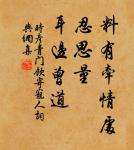 料有牽情處
忍思量
耳邊曾道
時彥青門飲寄寵人詞
典網集